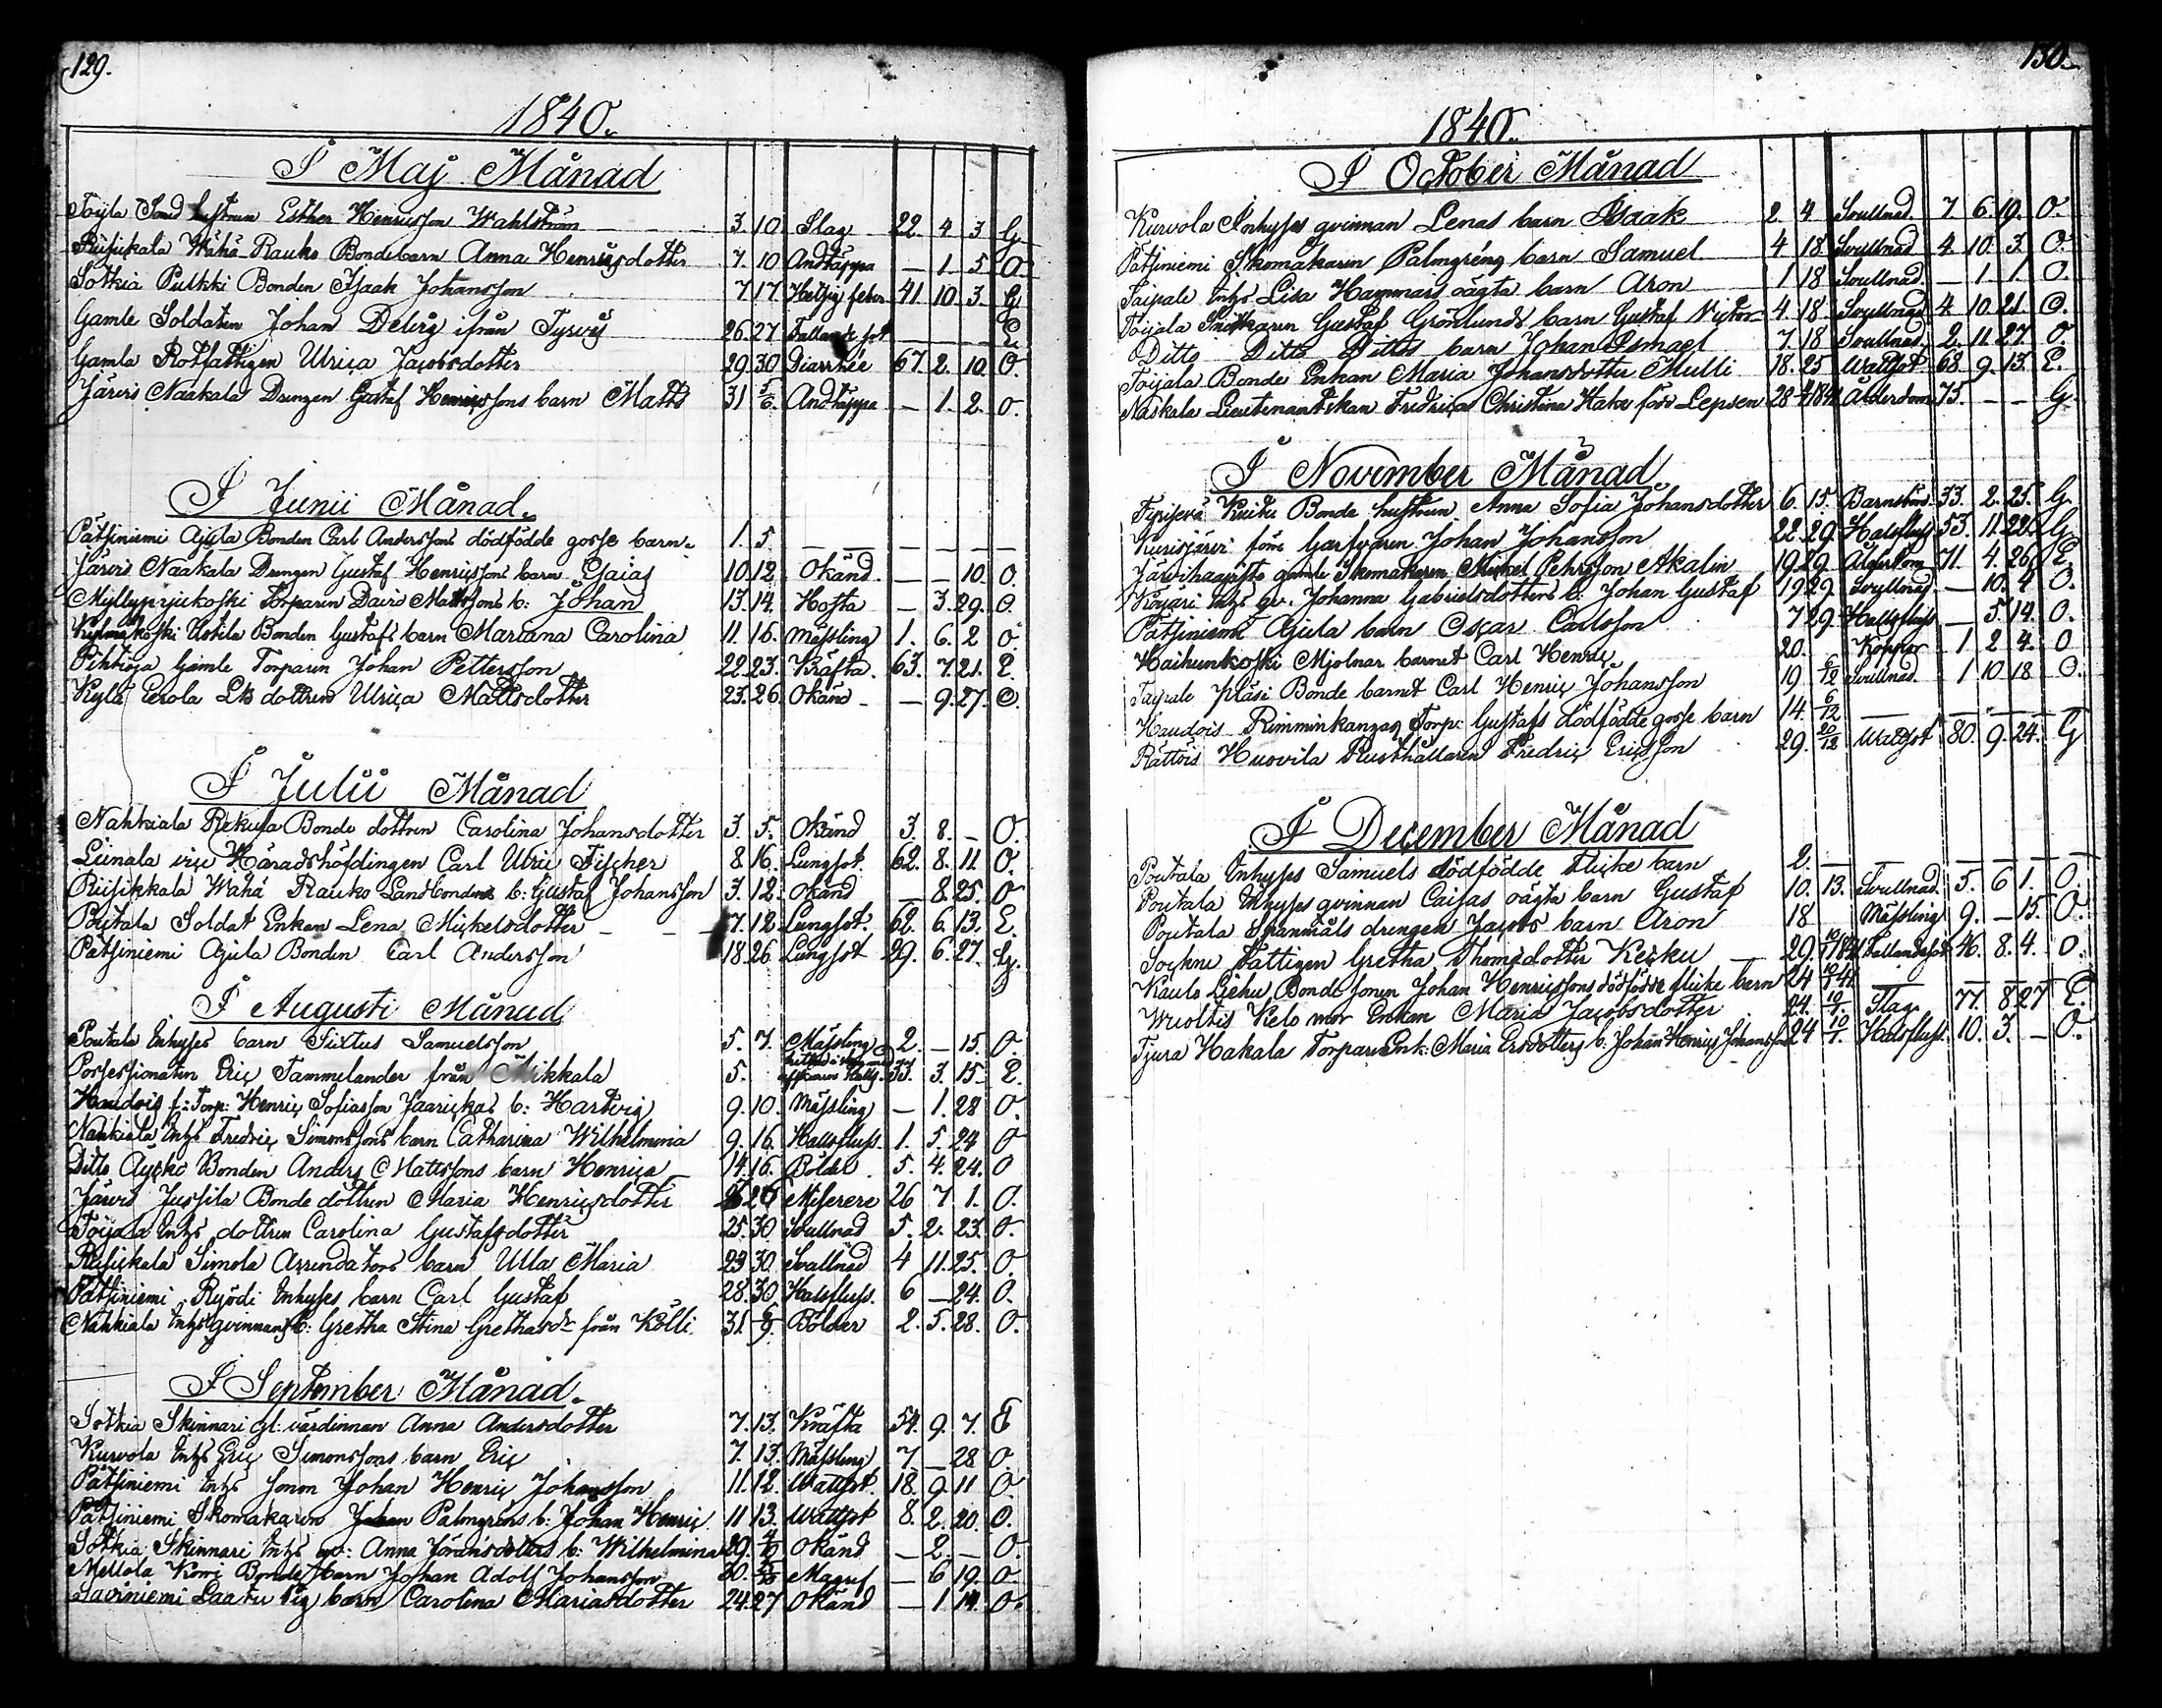 129.
1840.
I Maj Månad
Toijla Hustrun Esther Henricsson Wahlström 3. 10 Slag 22. 4 3 G
Riisickala Wähä Rauko Bondebarn Anna Henricsdotter 7. 10 Andtäppa — 1. 5 O
Sotkia Pulkki Bonden Isaak Johansson 7 17 Hetsig feber 41 10 3. G
Gamle Soldaten Johan Deberg ifrån Tyrvis 26. 27 Fallande sot — — — E
Gamla Rotfattigen Ulrica Jacobsdotter 29. 30 Diarrhée 67. 2. 10. O.
Järvis Naakala Drengen Gustaf Henricssons barn Matts 31 5/6. Andtäppa — 1. 2. O.
I Junii Månad.
Pätsiniemi Ajula Bonden Carl Anderssons dödfödde gosse barn. 1. 5. — — — — —
Järvis Naakala Drengen Gustaf Henricssons barn Esaias 10. 12 Okänd. — — 10. O.
Myllyprickoski Torparen David Mattssons b: Johan 13. 14. Hosta — 3. 29. O.
Kylmäkoski Uotila Bonden Gustafs barn Mariana Carolina 11. 16. Mässling 1. 6. 2 O
Pihtioja Gamle Torparen Johan Pettersson 22. 23. Kräfta. 63. 7. 21. E.
Kylä Erola Lbs dottren Ulrica Mattsdotter 23. 26. Okänd — — 9. 27. O.
I Julii Månad
Nahkiala Rekula Bonde dottren Carolina Johansdotter 3. 5. Okänd 3. 8. — O.
Leinala vice Häradshöfdingen Carl Ulric Fischer 8. 16. Lungsot. 62. 8. 11. O.
Riisikkala Wähä Rauko Landbondens b: Gustaf Johansson 3. 12. Okänd — 8. 25. O
Poutala Soldat Enkan Lena Mickelsdotter — — 7. 12 Lungsot. 62. 6. 13. E.
Pätsiniemi Ajula Bonden Carl Andersson 18. 26 Lungsot 29. 6. 27. G.
I Augusti Månad
Poutala Inhyses barn Sixtus Samuelsson 5. 7. Mässling 2. — 15. O.
Possessionaten Eric Tammelander från Mikkala 5. 33. 3. 15. E.
Haudois f: Torp: Henric Sofiasson Jaarickas b: Hartvig 9. 10. Mässling — 1. 28 O.
Nahkiala Inhs Fredric Simonssons barn Catharina Wilhelmina 9. 16. Halsfluss. 1. 5. 24 O
Ditto Aycko Bonden Anders Mattssons barn Henrica 14. 16. Bölder 5. 4. 24. O
Järvis Jussila Bonde dottren Maria Henricsdotter 26 Miserere 26 7 1. O.
Toijala Inhs dottren Carolina Gustafsdotter 25. 30. Svullnad 5. 2. 23. O.
Riisickala Simola Arrendators barn Ulla Maria 23 30. Svullnad 4 11. 25. O.
Pätsiniemi Ryödi Inhyses barn Carl Gustaf 28. 30 Halsfluss. 6 — 24. O.
Nahkiala Inhs qvinnans b: Gretha Stina Grethasdr från Kölli. 31. 6/9. Bölder 2. 5. 28. O.
I September Månad.
Sotkia Skinnari Gl: värdinnan Anna Andersdotter 7. 13. Kräfta 54. 9. 7. E
Kurvola Inhs Eric Simonssons barn Eric 7. 13. Mässling 7 — 28 O.
Pätsiniemi Inhs sonen Johan Henric Johansson 11. 12. Wattsot. 18. 9. 11 O.
Pätsiniemi Skomakaren Johan Palmgréns b: Johan Henric 11 13. Wattsot 8. 2. 20. O.
Sotkia Skinnari Inhs qv: Anna Jöransdotters b: Wilhelmina 29. 4/10 Okänd — 2. — O.
Mellola Kowe Bonde barn Johan Adolf Johansson 30. Magref — 6 19. O.
Saviniemi Laatu Pig barn Carolina Mariasdotter 24. 27 Okänd — 1 14. O.
130.
1840.
I October Månad
Kurvola Inhyses qvinnan Lenas barn Isaak 2. 4. Svullnad. 7. 6. 19. O.
Pätsiniemi Skomakaren Palmgréns barn Samuel 4 18. Svullnad 4. 10. 3. O.
Taipale Inhs Lisa Hammars oägta barn Aron 1 18 Svullnad. — 1. 1. O.
Toijala Snickaren Gustaf Grönlunds barn Gustaf Victor 4. 18. Svullnad 4. 10. 21. O.
Ditto Ditto Dittos barn Johan Ismael 7. 18 Svullnad. 2. 11. 27. O.
Toijala Bonde Enkan Maria Johansdotter Mulli 18. 25 Wattsot. 68. 9. 13. E.
Naskala Lieutenantskan Fredrica Christina Hake född Lepsen 28 1841 Ålderdom 75. — — G.
I November Månad
Kuitu Bonde hustrun Anna Sofia Johansdotter 6. 15. Barnsbörd 33. 2. 25. G.
Kurisjärvi före Garfvaren Johan Johansson 22. 29. Halsfluss 53. 11. 22. G.
Järvihaavisto gamle Skomakaren Mickel Pehrsson Akalin 19. 29. Ålderdom 71. 4. 26. E.
Inhs qv. Johanna Gabrielsdotters b: Johan Gustaf 19 29. Svullnad — 10. 4 O.
Pätsiniemi Ajula barn Oscar Carlsson 7 29. Halsfluss — 5 14. O.
Haihunkoski Mjolnar barnet Carl Henric 20. Koppor 1 2 4. O
Taipale Yläsi Bonde barnet Carl Henric Johansson 19 6/12 Svullnad. 1 10 18 O.
Haudois Rimminkangas Torp: Gustafs dödfödde gosse barn 14. 6/12 — — — —
Rättvis Huovila Rusthållaren Fredric Ericsson 29. 20/12 Wattsot 80. 9. 24. G
I December Månad
Poutala Inhyses Samuels dödfödde flicke barn 2. — — — — — —
Poutala Inhyses qvinnan Caisas oägta barn Gustaf 10. 13. Svullnad. 5. 6 1. O.
Poutala Spanmåls drengen Jacobs barn Aron 18 Mässling 9. — 15. O.
Sockne Fattigen Gretha Thomsdotter Kecku — 29. Fallandesot 46. 8. 4. O.
Kaulo Liehu Bonde sonen Johan Henricssons dödfödde flicke barn 24 — — — —
Wuoltis Kelo mor Enkan Maria Jacobsdotter 24. 10/1. Slag 77. 8 27 E.
Tjura Hakala Torpare Enk: Maria Ersdotters b. Johan Henric Johansson 24 10/1. Halsfluss. 10. 3. — O.